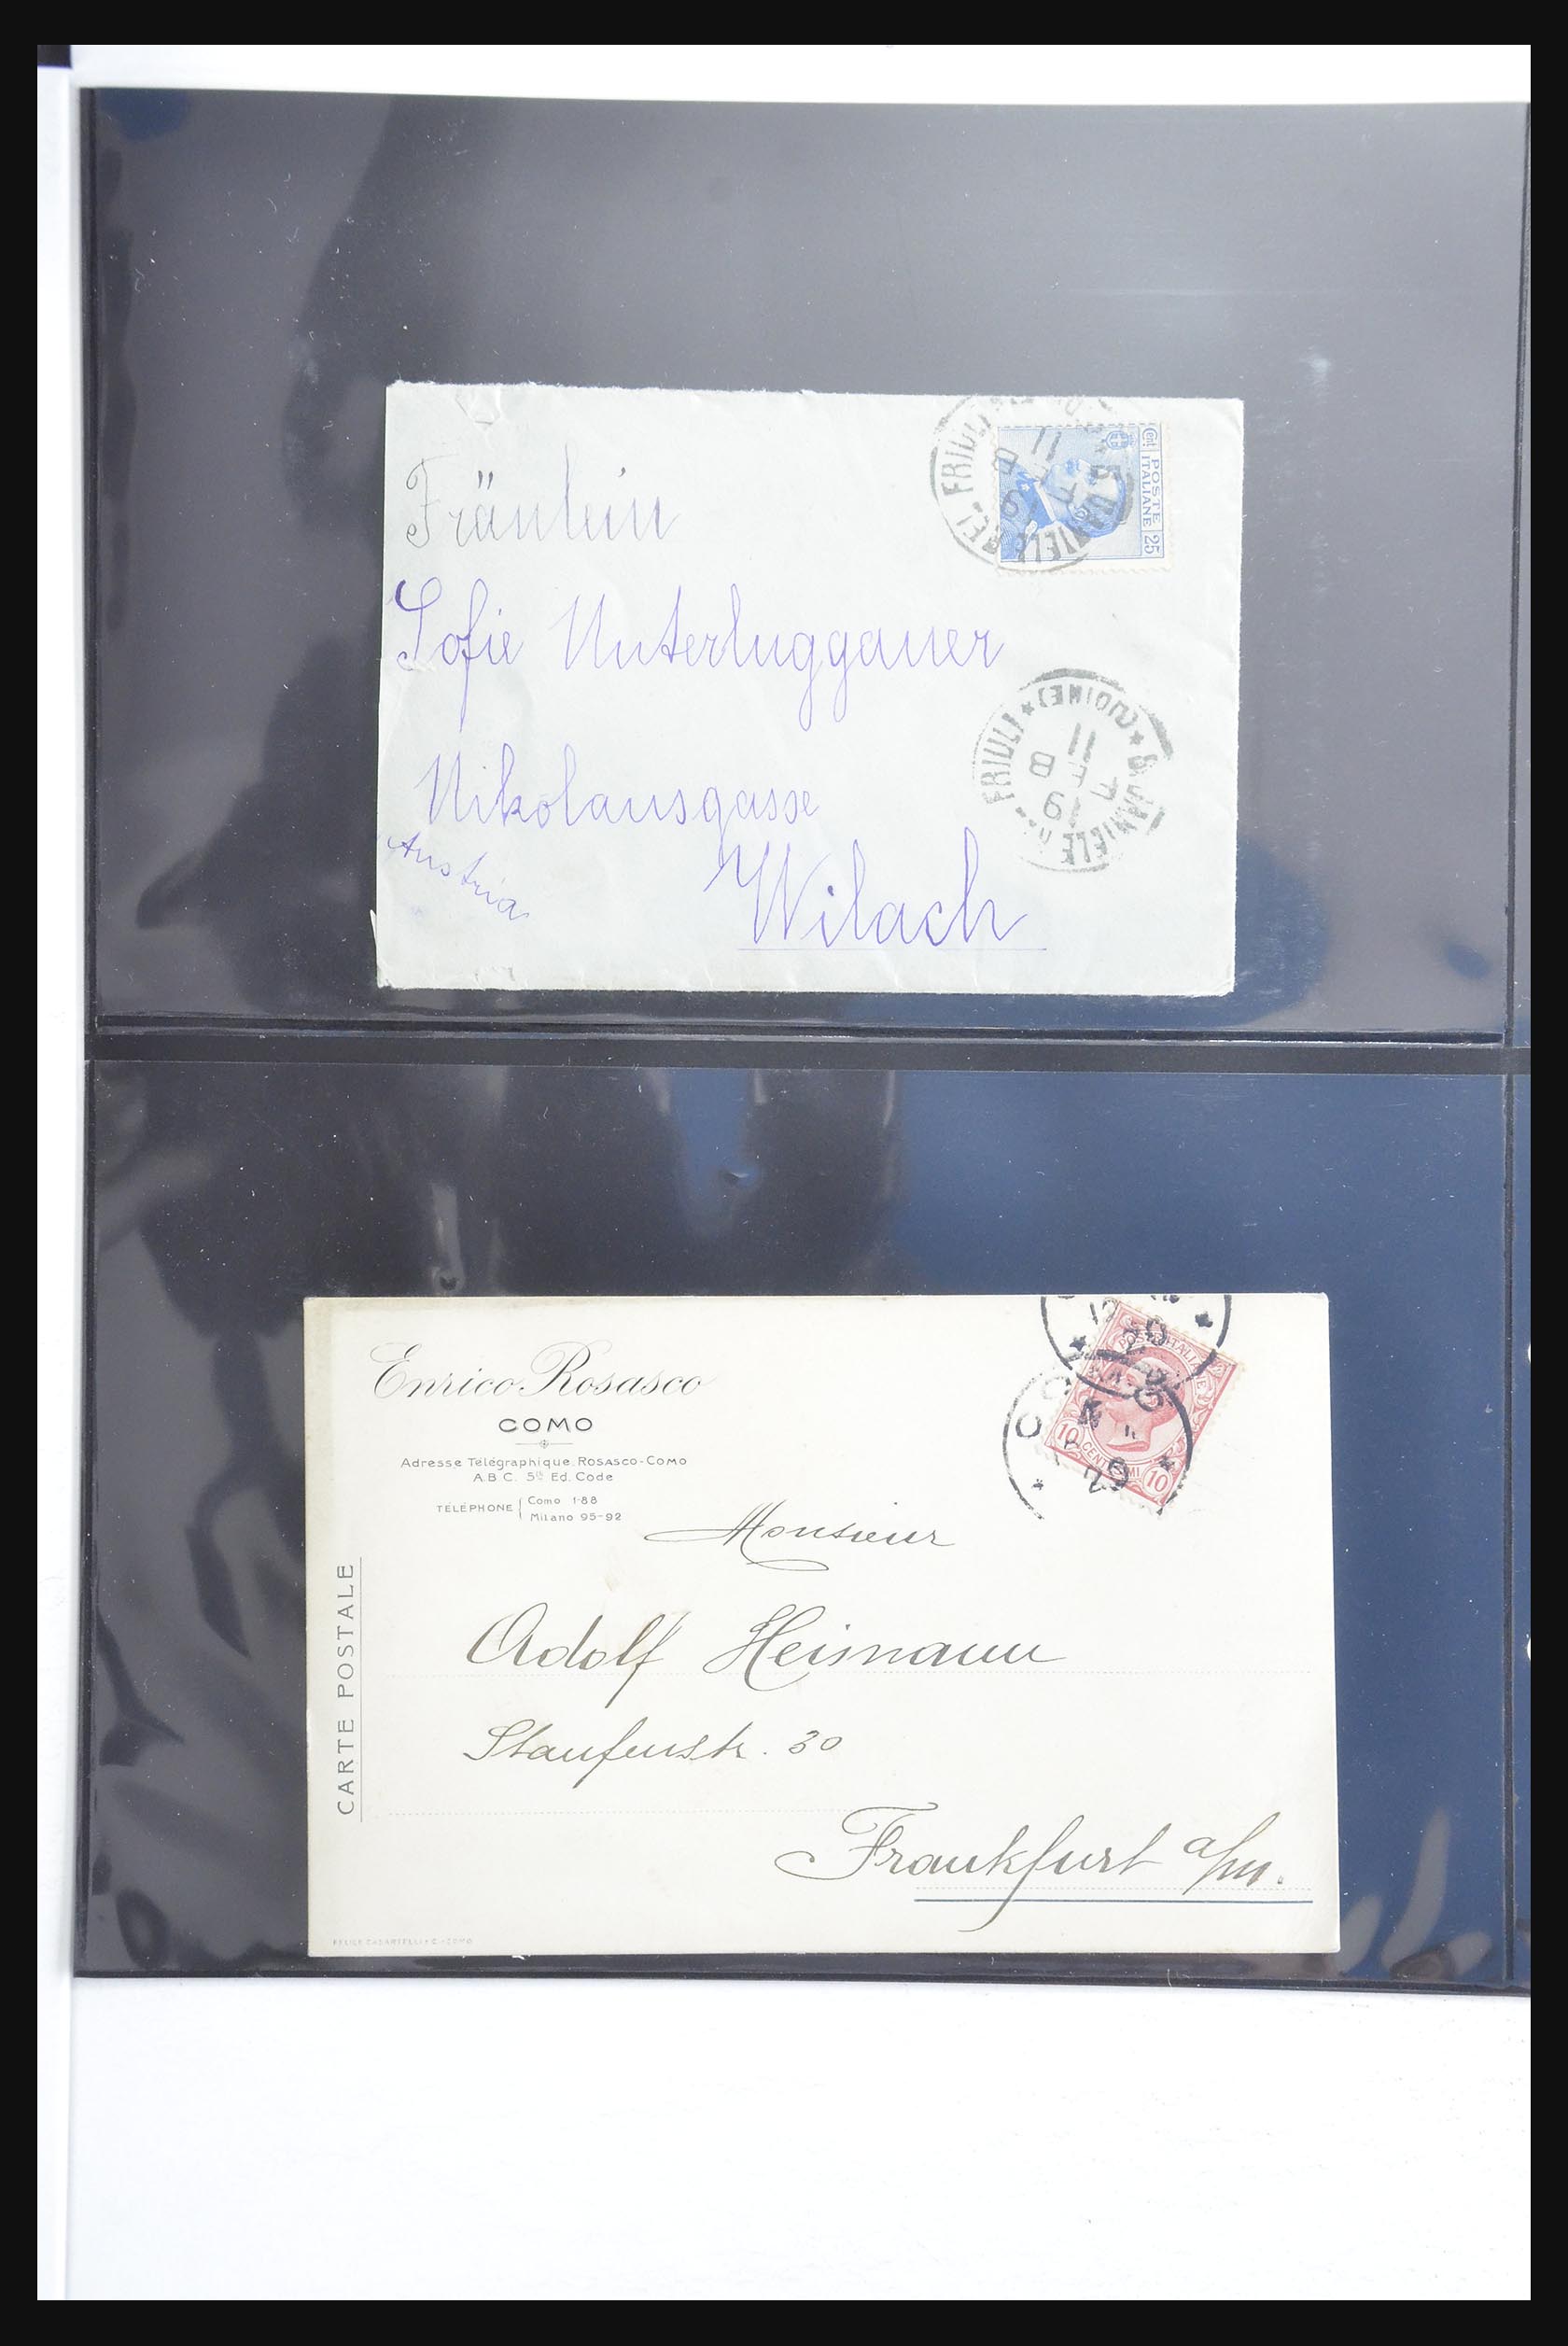 Fräulein
Sofie Unterluggauer
Nikolausgasse
Austria
Wilach
POSTE
ITALIANE
Cent. 25
FRIULI
S. DANIELE
FRIULI * (UDINE) *
19
FEB
11
Enrico Rosasco
COMO
Adresse Télégraphique. Rosasco-Como
A.B.C. 5th Ed. Code
TÉLÉPHONE
Como 1-88
Milano 95-92
CARTE POSTALE
10 CENTESIMI 10
Monsieur
Adolf Heimann
Staufenstr. 30
Frankfurt a/m.